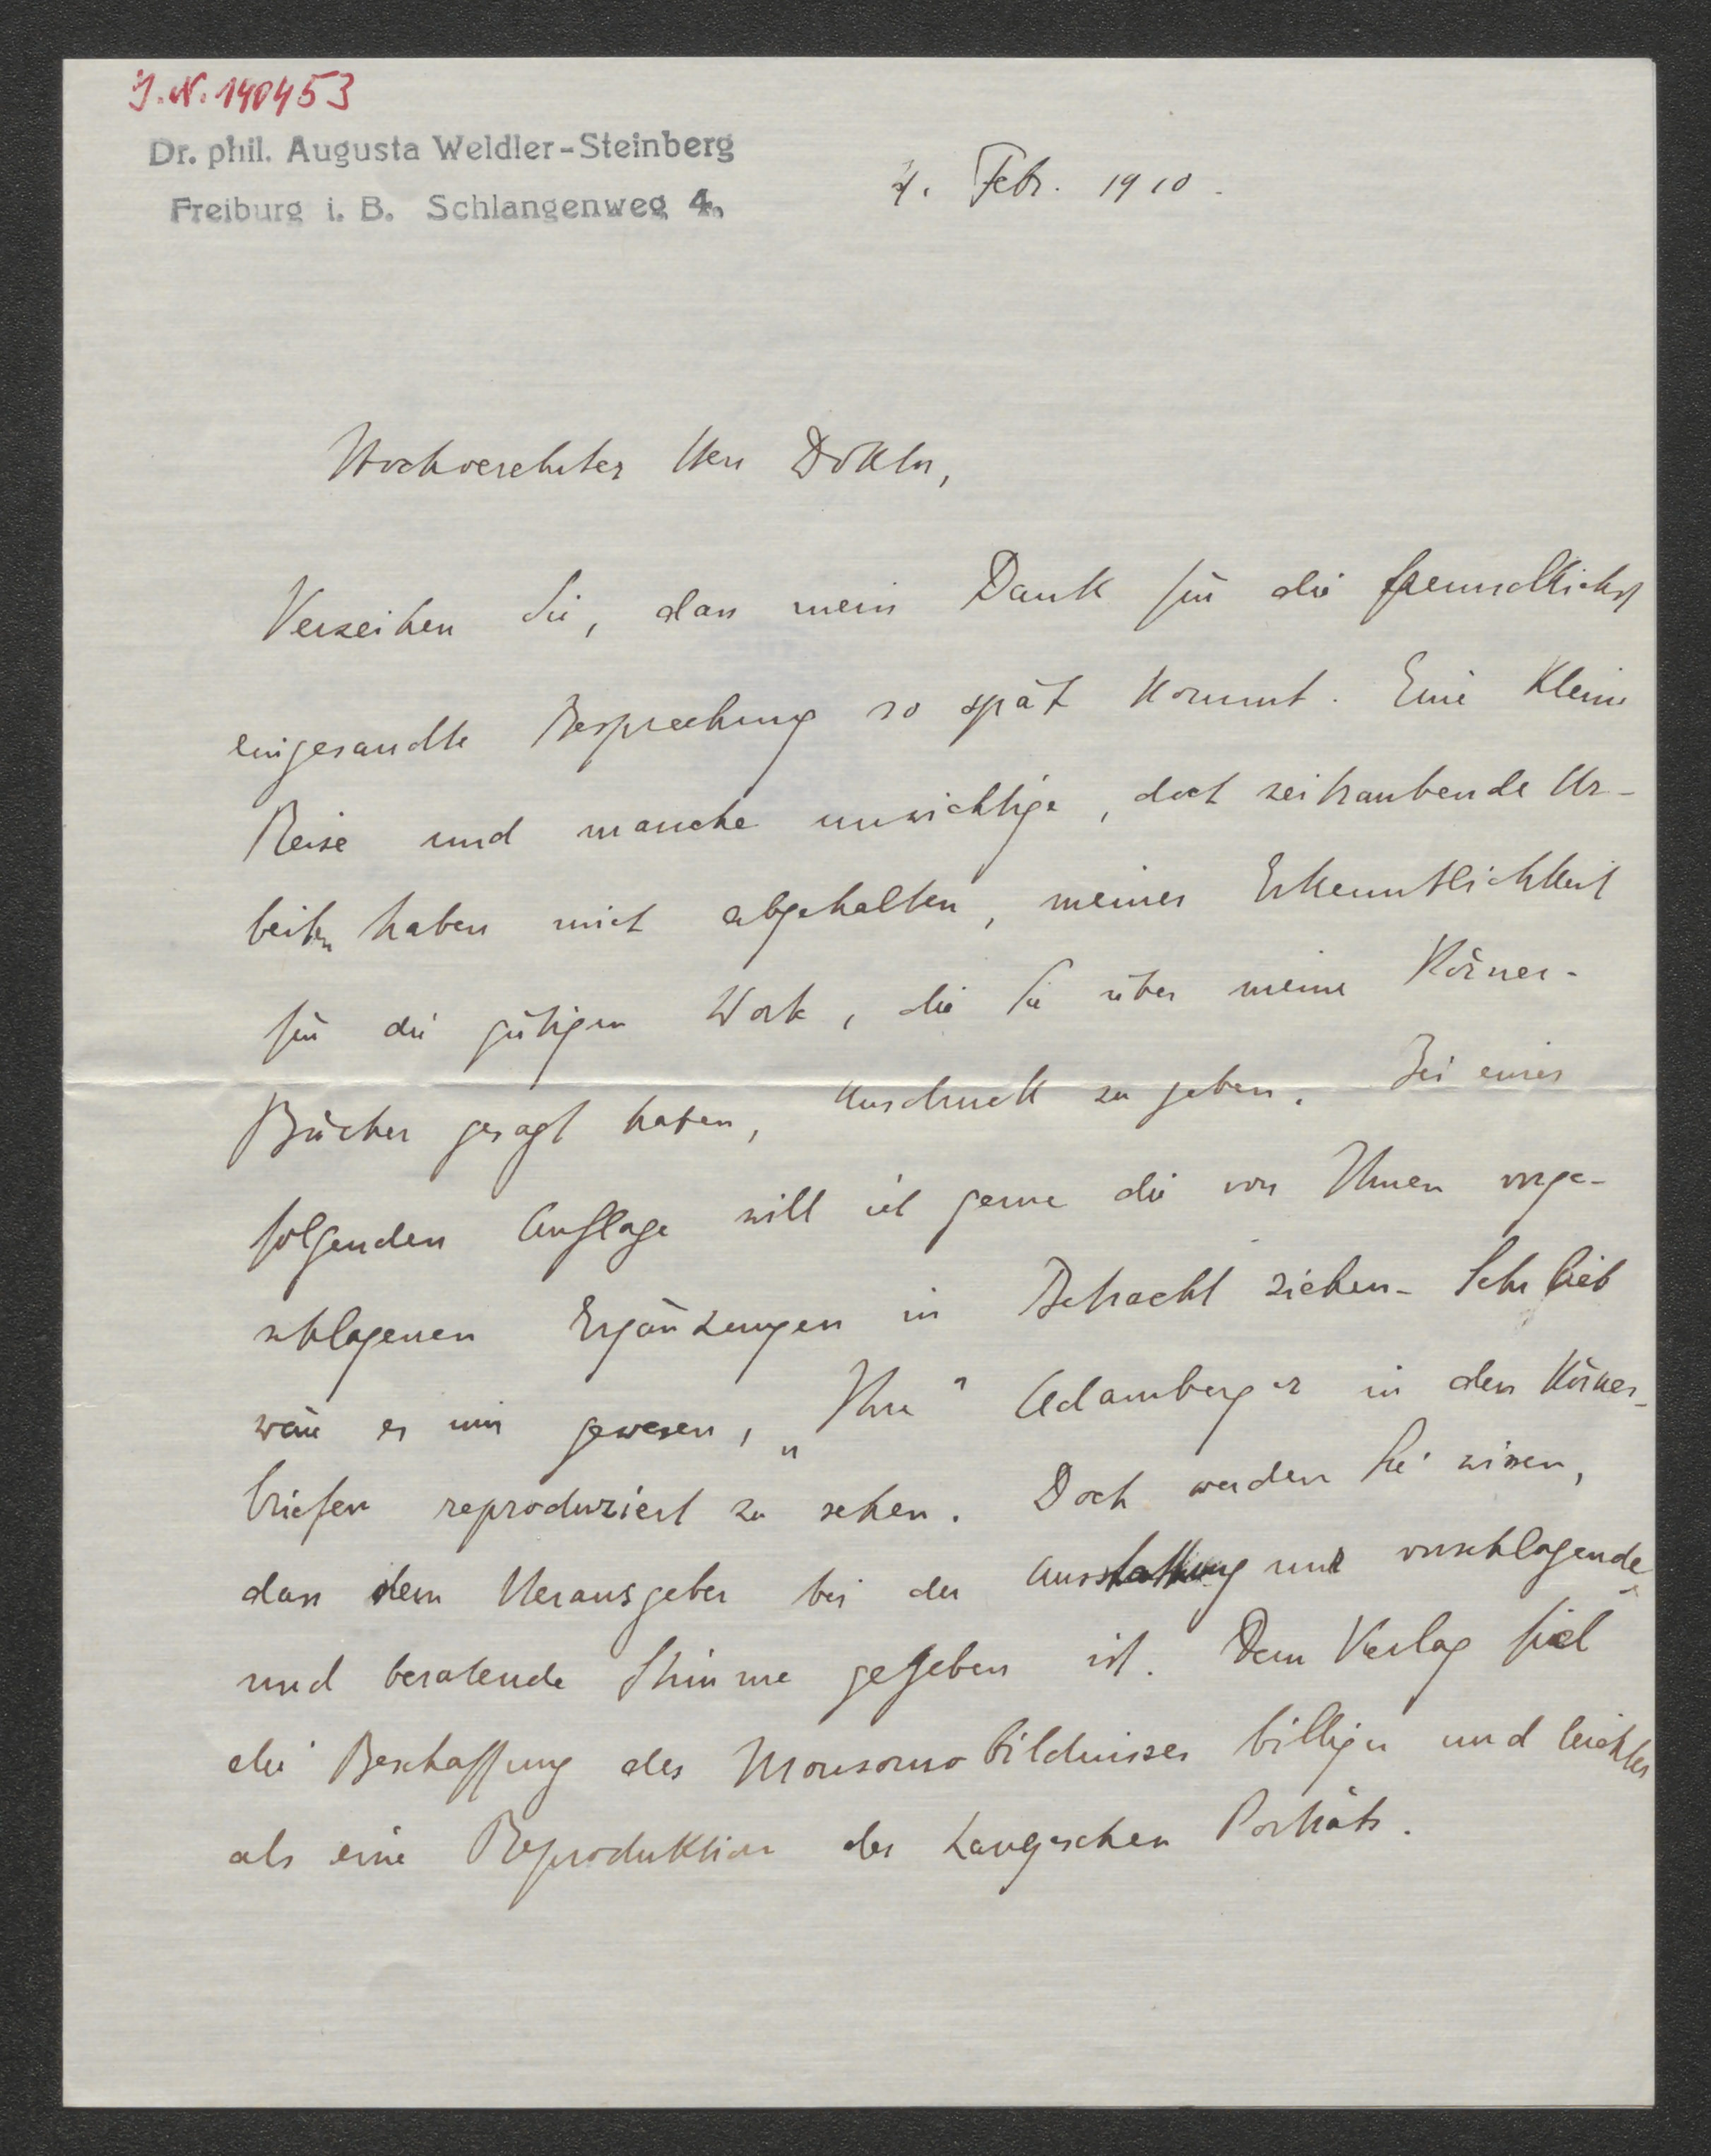 J.N. 140453
Dr. phil. Augusta Weldler-Steinberg
Freiburg i. B. Schlangenweg 4.
4. Febr. 1910.
Hochverehrter Herr Doktor,
Verzeihen Sie, dass mein Dank für die freundlichst
eingesandte Besprechung so spät kommt. Eine kleine
Reise und manche unwichtige, doch zeitraubende Ar-
beiten haben mich abgehalten, meiner Erkenntlichkeit
für die gütigen Worte, die Sie über meine Körner-
Bücher gesagt haben, Ausdruck zu geben. Bei einer
folgenden Auflage will ich gerne die von Ihnen vorge-
schlagenen Ergänzungen in Betracht ziehen. Sehr lieb
wäre es mir gewesen, „Ihre" Adamberger in den Körner-
briefen reproduziert zu sehen. Doch werden Sie wissen,
dass dem Herausgeber bei der Ausstattung nur vorschlagende
und beratende Stimme gegeben ist. Dem Verlag fiel
die Beschaffung des Monsornobildnisses billiger und leichter
als eine Reproduktion des Langeschen Porträts.